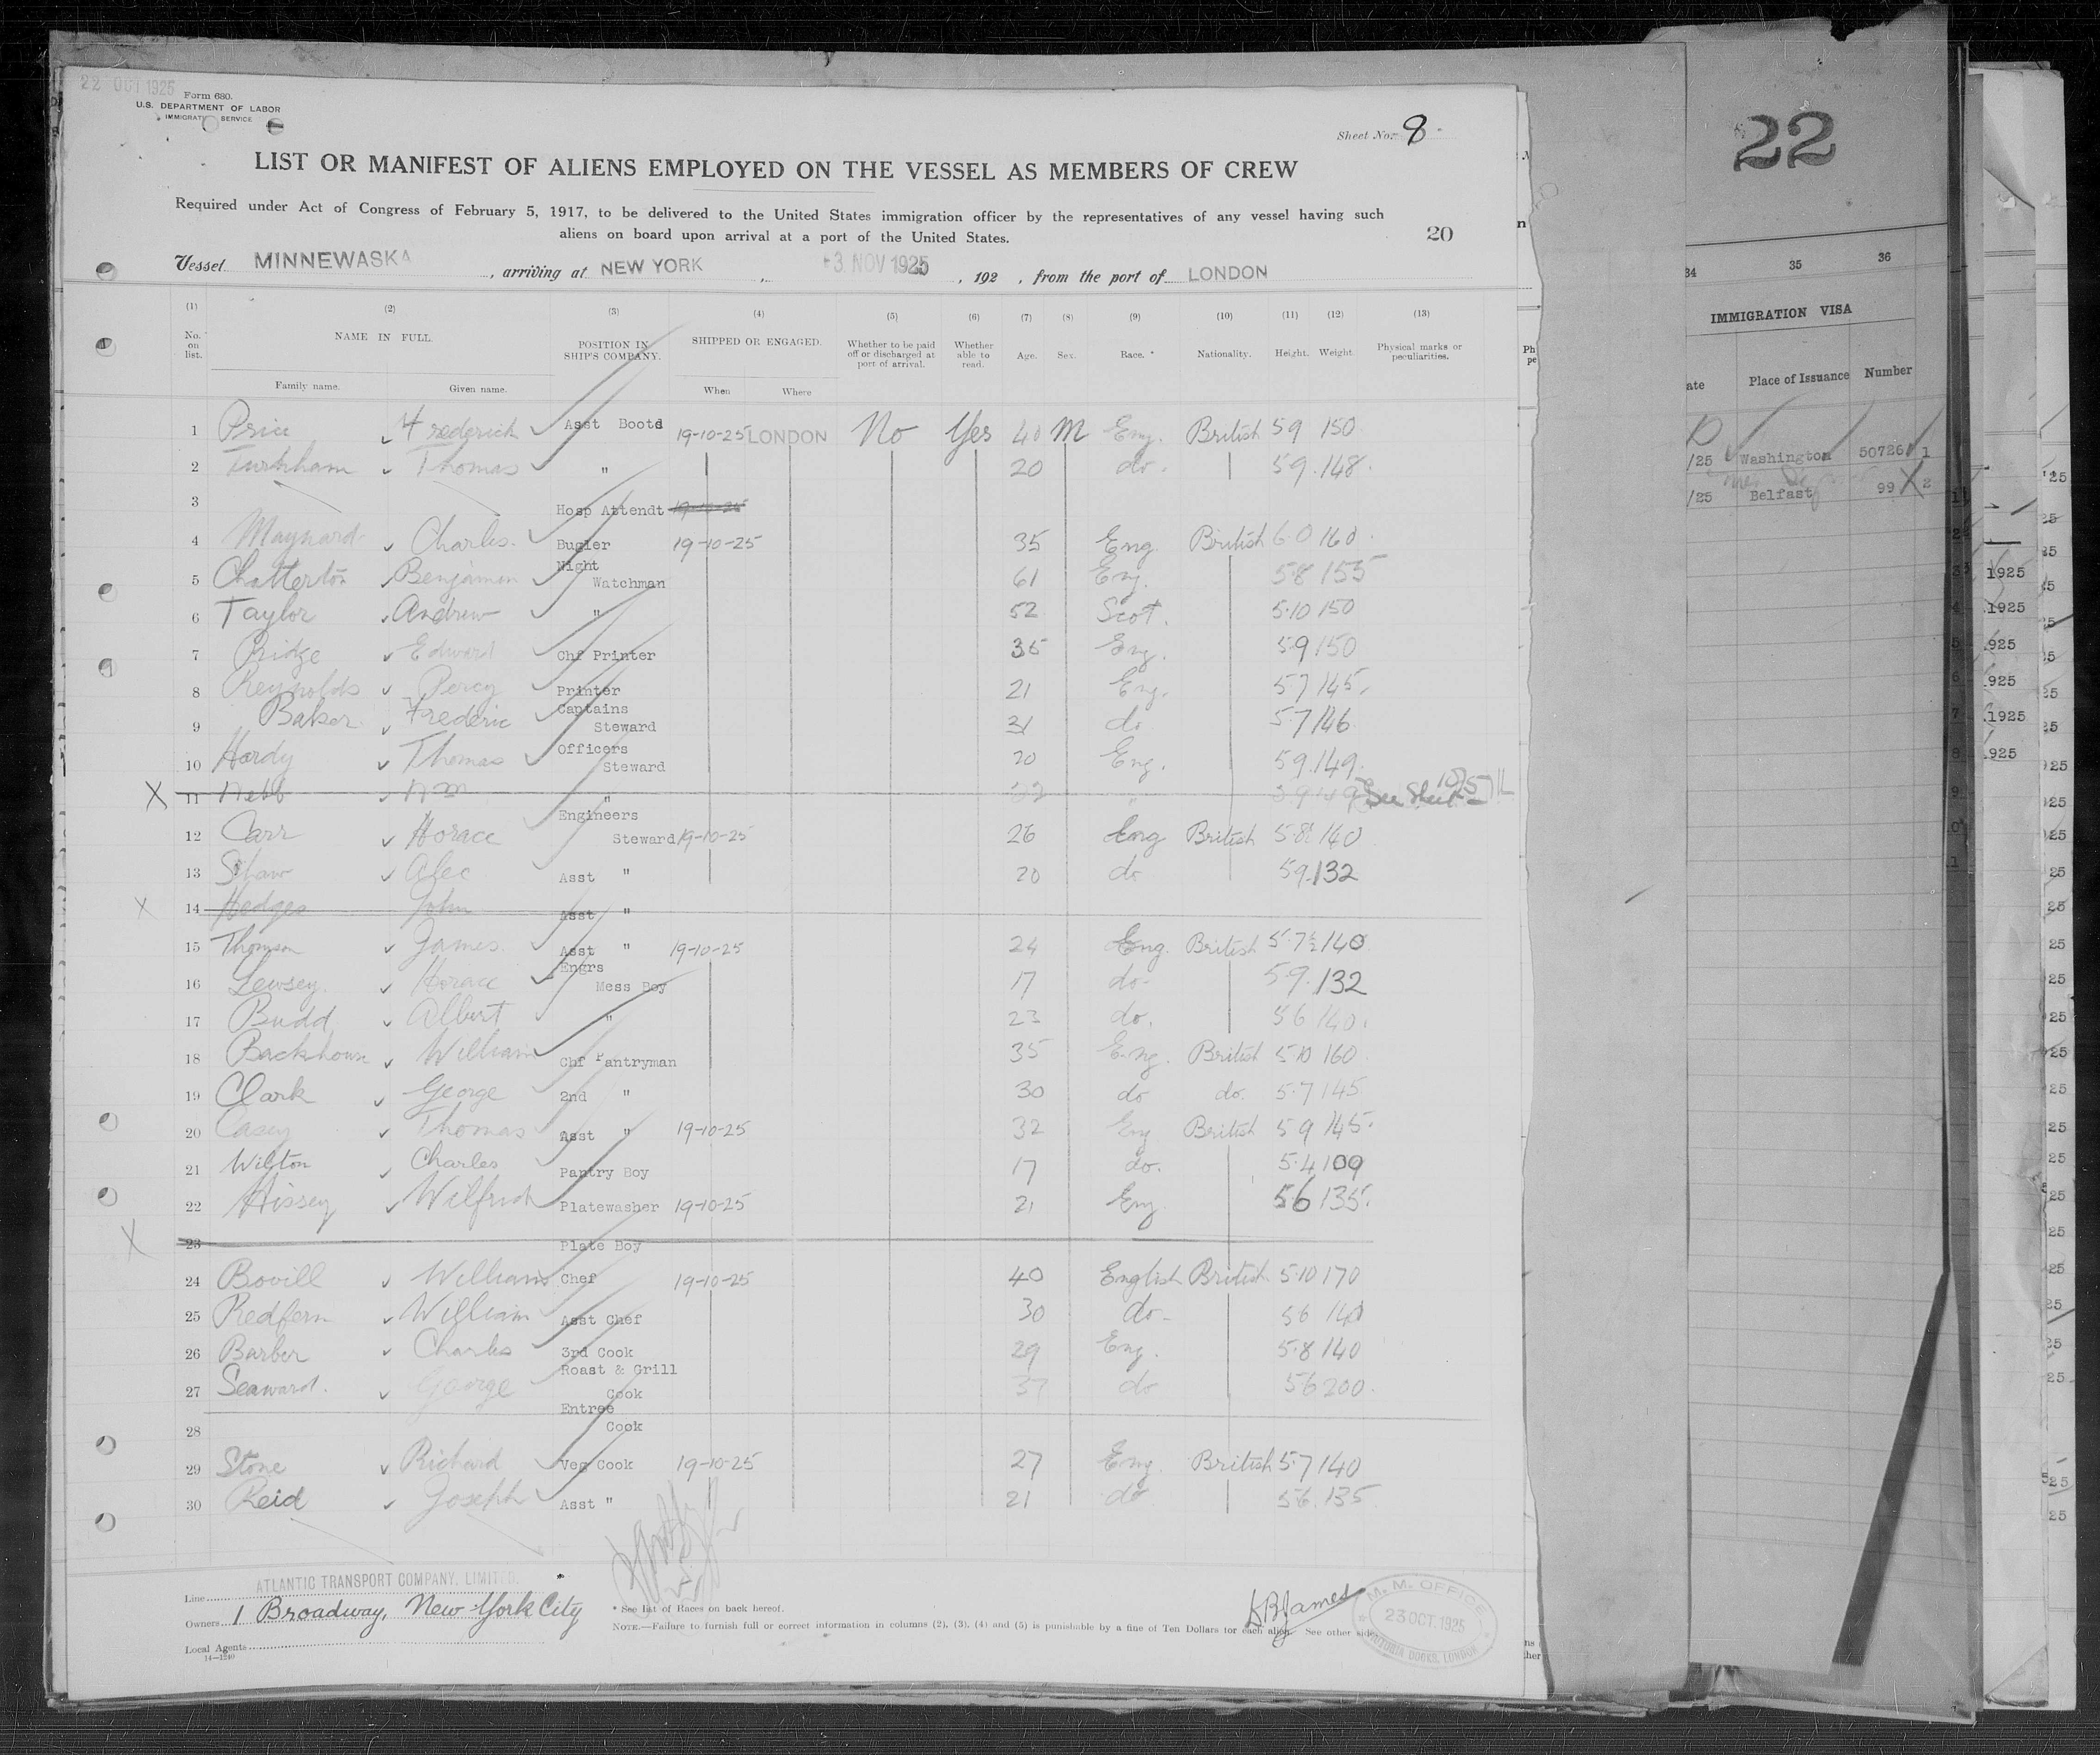 22 OCT 1925
Form 680.
U.S. DEPARTMENT OF LABOR
IMMIGRATION SERVICE
Sheet No. 8
LIST OR MANIFEST OF ALIENS EMPLOYED ON THE VESSEL AS MEMBERS OF CREW
Required under Act of Congress of February 5, 1917, to be delivered to the United States immigration officer by the representatives of any vessel having such
aliens on board upon arrival at a port of the United States.
20
Vessel MINNEWASKA, arriving at NEW YORK, 3 NOV 1925, 192 , from the port of LONDON
(1) (2) (3) (4) (5) (6) (7) (8) (9) (10) (11) (12) (13)
No. on list. NAME IN FULL. POSITION IN SHIP'S COMPANY. SHIPPED OR ENGAGED. Whether to be paid off or discharged at port of arrival. Whether able to read. Age. Sex. Race. * Nationality. Height. Weight. Physical marks or peculiarities.
Family name. Given name. When Where
1 Price Frederick Asst Boots 19-10-25 LONDON No Yes 40 M Eng. British 5 9 150
2 Turkham Thomas " 20 do. 5 9 148
3 Hosp Attendt 19-10-25
4 Maynard Charles Bugler 19-10-25 35 Eng. British 6 0 160
5 Chatterton Benjamin Night Watchman 61 Eng. 5 8 155
6 Taylor Andrew " 52 Scot. 5 10 150
7 Pidge Edward Chf Printer 35 Eng. 5 9 150
8 Reynolds Percy Printer 21 Eng. 5 7 145
9 Baker Frederic Captains Steward 31 do 5 7 146
10 Hardy Thomas Officers Steward 20 Eng. 5 9 149
11 Webb Wm " 22 " See Sheet
12 Carr Horace Engineers Steward 19-10-25 26 Eng British 5 8 140
13 Shaw Alec Asst " 20 do 5 9 132
14 Hedges John Asst "
15 Thomson James Asst " 19-10-25 24 Eng. British 5 7½ 140
16 Lewsey Horace Engrs Mess Boy 17 do 5 9 132
17 Budd Albert " 23 do. 5 6 140
18 Backhouse William Chf Pantryman 35 Eng. British 5 10 160
19 Clark George 2nd " 30 do do. 5 7 145
20 Casey Thomas Asst " 19-10-25 32 Eng British 5 9 145
21 Wilton Charles Pantry Boy 17 do. 5 4 109
22 Hissey Wilfrid Platewasher 19-10-25 21 Eng 5 6 135
23 Plate Boy
24 Bovill William Chef 19-10-25 40 English British 5 10 170
25 Redfern William Asst Chef 30 do 5 6 140
26 Barber Charles 3rd Cook 29 Eng. 5 8 140
27 Seaward George Roast & Grill Cook 37 do 5 6 200
28 Entree Cook
29 Stone Richard Veg Cook 19-10-25 27 Eng. British 5 7 140
30 Reid Joseph Asst " 21 do 5 6 135
Line ATLANTIC TRANSPORT COMPANY, LIMITED.
Owners 1 Broadway, New York City
Local Agents
14—1240
* See list of Races on back hereof.
NOTE.—Failure to furnish full or correct information in columns (2), (3), (4) and (5) is punishable by a fine of Ten Dollars for each alien. See other side.
M. M. OFFICE
23 OCT. 1925
VICTORIA DOCKS, LONDON
22
34 35 36
IMMIGRATION VISA
Place of Issuance Number
/25 Washington 50726 1
/25 Belfast 99 2